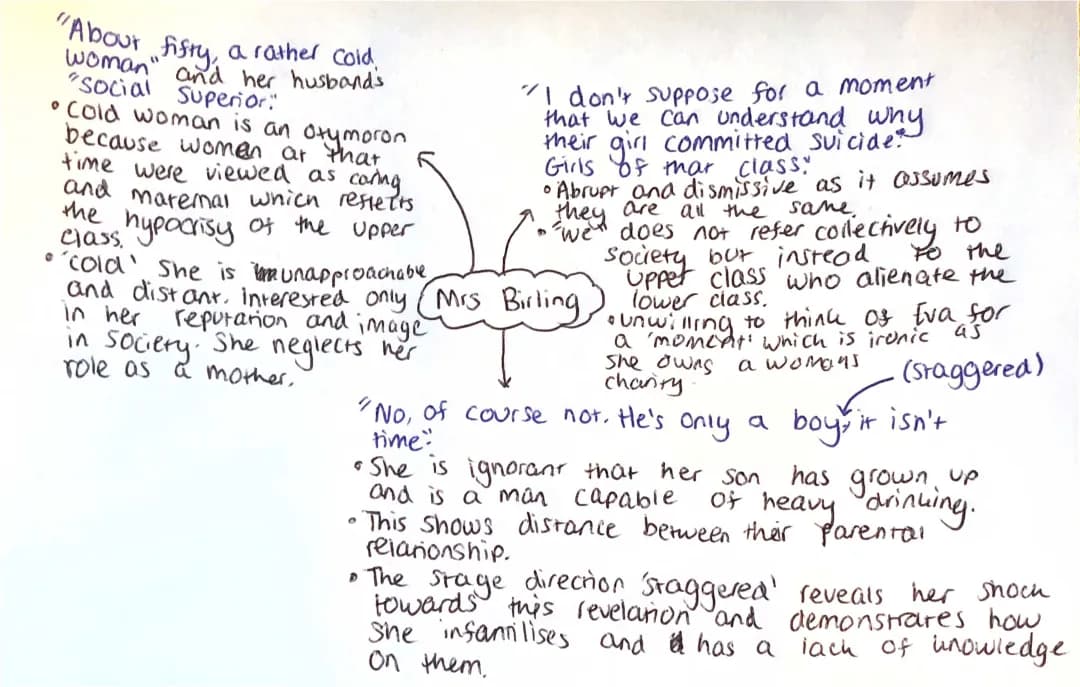 "About fifty, a rather cold
woman" and her husband's
"social superior."
• Cold woman is an oxymoron
because women at that
time were viewed as caring
and maternal which reflects
the hypocrisy of the upper
class.
• 'cold' She is unapproachable
and distant. Interested only
in her reputation and image
in society. She neglects her
role as a mother.
Mrs Birling
"I don't suppose for a moment
that we can understand why
their girl committed suicide."
Girls of that class."
• Abrupt and dismissive as it assumes
they are all the same.
• "we" does not refer collectively to
society but instead to the
upper class who alienate the
lower class.
• unwilling to think of Eva for
a 'moment' which is ironic as
she owns a womans
charity.
(staggered)
"No, of course not. He's only a boy, it isn't
time."
• She is ignorant that her son has grown up
and is a man capable of heavy drinking.
• This shows distance between their parental
relationship.
• The stage direction 'staggered' reveals her shock
towards this revelation and demonstrates how
She infantilises and has a lack of knowledge
on them.